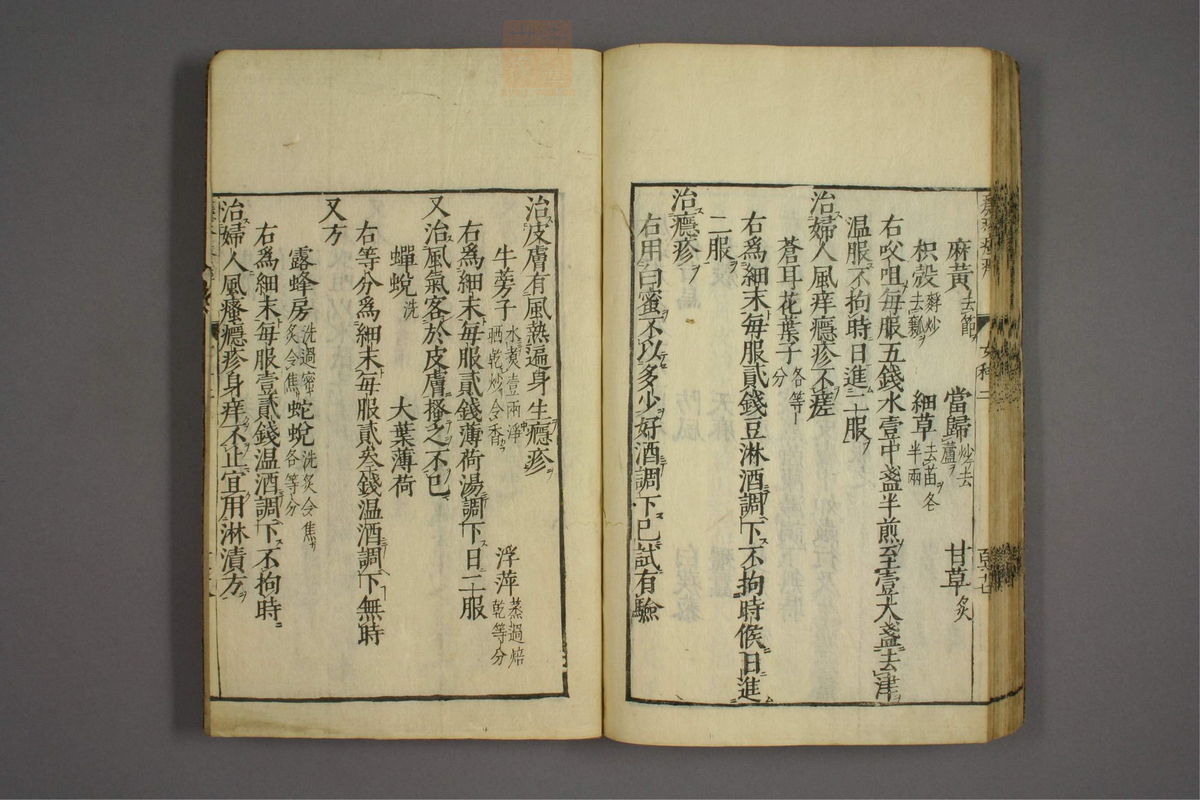 麻黃去節 當歸炒去蘆 甘草炙
枳殼麩炒去瓤 細草去苗各半兩
右㕮咀每服五錢水壹中盞半煎至壹大盞去津
温服不拘時日進二服
治婦人風痒癮疹不瘥
蒼耳花葉子各等分
右爲細末每服貳錢豆淋酒調下不拘時候日進
二服
治癮疹
右用白蜜不以多少好酒調下已試有驗
治皮膚有風熱遍身生癮疹
牛蒡子水煑壹兩淨晒乾炒令香 浮萍蒸過焙乾等分
右爲細末每服貳錢薄荷湯調下日二服
又治風氣客於皮膚搔之不已
蟬蛻洗 大葉薄荷
右等分爲細末每服貳矣錢温酒調下無時
又方
露蜂房洗過蜜炙令焦 蛇蛻洗炙令焦各等分
右爲細末每服壹貳錢温酒調下不拘時
治婦人風瘙癮疹身痒不止宜用淋漬方